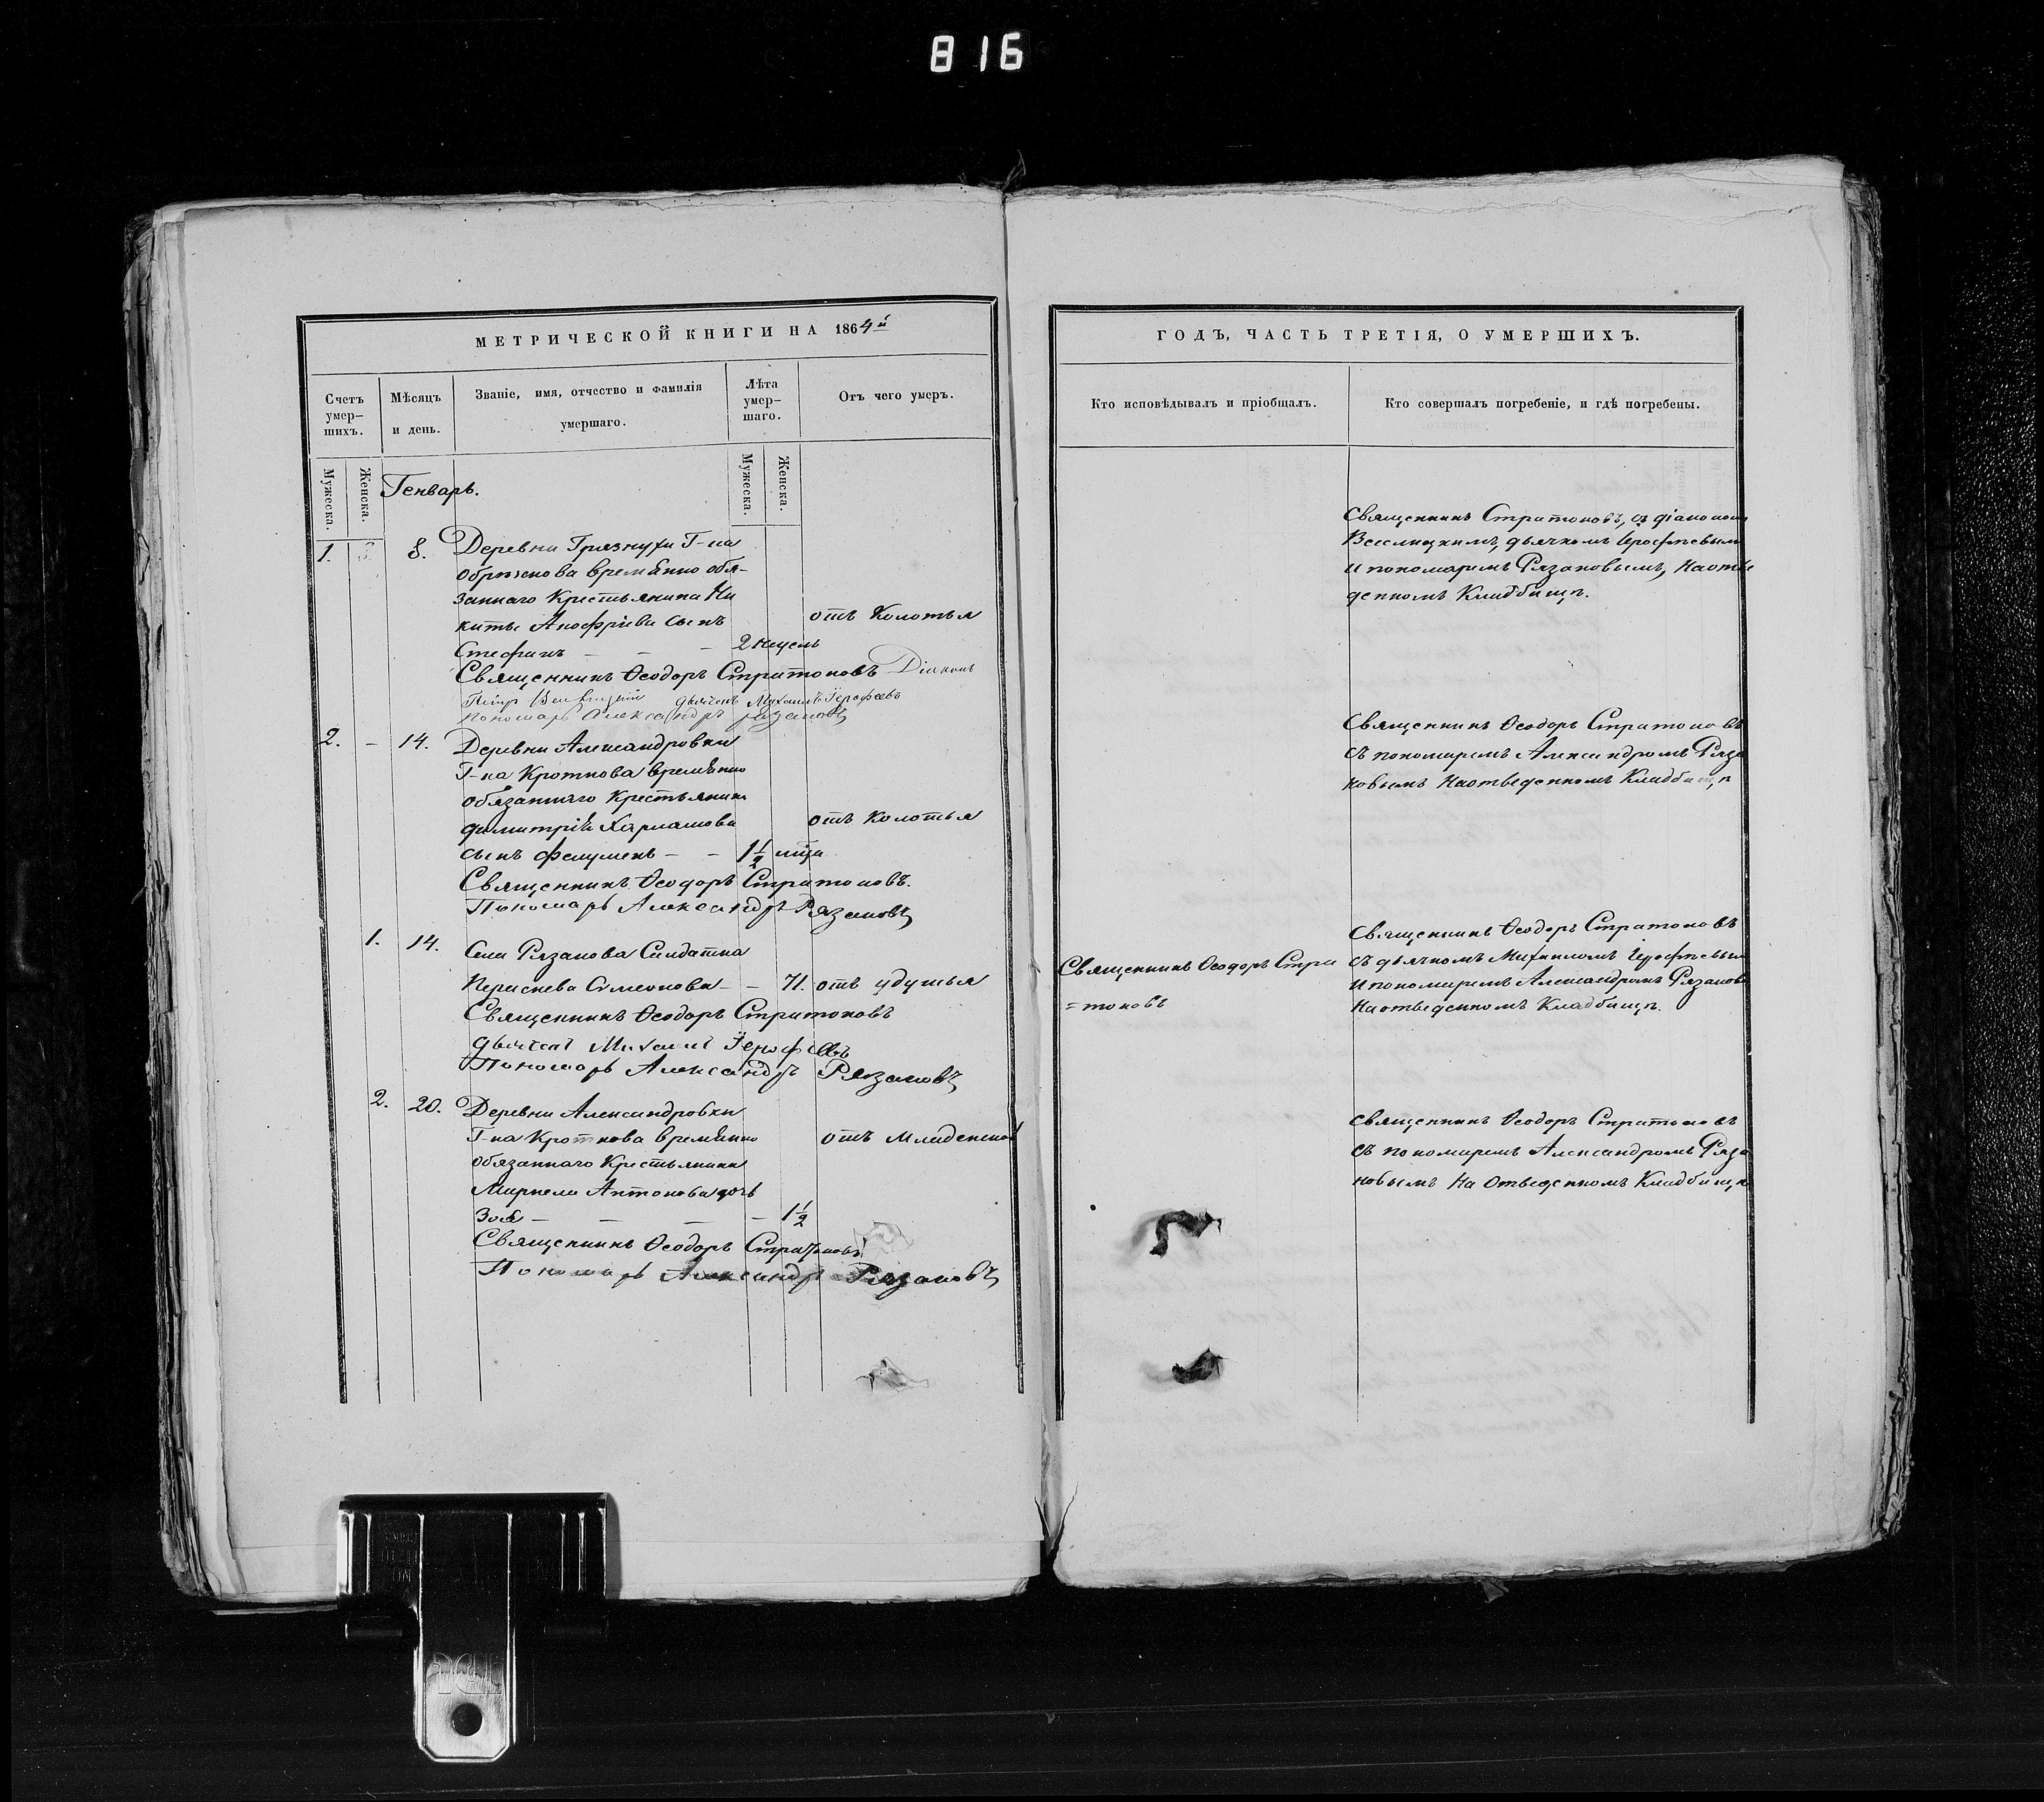 816
МЕТРИЧЕСКОЙ КНИГИ НА 1864й
Счетъ умер-шихъ.
Мѣсяцъ и день.
Званіе, имя, отчество и фамилія умершаго.
Лѣта умер-шаго.
Отъ чего умеръ.
Мужеска.
Женска.
Мужеска.
Женска.
Генварь.
1. 8. Деревни Грязнухи Г-на
временно обя-
заннаго Крестьянина Ни
киты Анофріева сынъ отъ Колотья
Стефанъ - - - 2 недель
Священникъ Ѳеодоръ Стратоновъ Діаконъ
Петръ Веселицкій дьячекъ Михаилъ Іерофеевъ
пономарь Александръ Рязановъ
2. - 14. Деревни Александровки
Г-на Кроткова временно
обязаннаго Крестьянина
Димитрія Харлашова отъ Колотья
сынъ - - 1 1/2 мѣца
Священникъ Ѳеодоръ Стратоновъ.
Пономарь Александръ Рязановъ
1. 14. Села Рязанова Салдатка
Симеонова - - 71. отъ удушья
Священникъ Ѳеодоръ Стратоновъ
дьячекъ Михаилъ Іерофеевъ
Пономарь Александръ Рязановъ
2. 20. Деревни Александровки
Г-на Кроткова временно отъ Младенской
обязаннаго Крестьянина
Маркела Антонова дочь
Зоя - - - - 1 1/2
Священникъ Ѳеодоръ Стратоновъ
Пономарь Александръ Рязановъ
ГОДЪ, ЧАСТЬ ТРЕТІЯ, О УМЕРШИХЪ.
Кто исповѣдывалъ и пріобщалъ.
Кто совершалъ погребеніе, и гдѣ погребены.
Священникъ Стратоновъ, съ діакономъ
Веселицкимъ, дьячкомъ Іерофѣевым
и пономаремъ Рязановымъ, на отве
денномъ Кладбищѣ.
Священникъ Ѳеодоръ Стратоновъ
съ пономаремъ Александромъ Ряза
новымъ на отведенномъ Кладбищѣ
Священникъ Ѳеодоръ Стра
=тоновъ
Священникъ Ѳеодоръ Стратоновъ
съ дьячкомъ Михаиломъ Іерофѣевым
и пономаремъ Александромъ Рязанов
на отведенномъ Кладбищѣ.
Священникъ Ѳеодоръ Стратоновъ
съ пономаремъ Александромъ Ряза
новымъ на отведенномъ Кладбищѣ